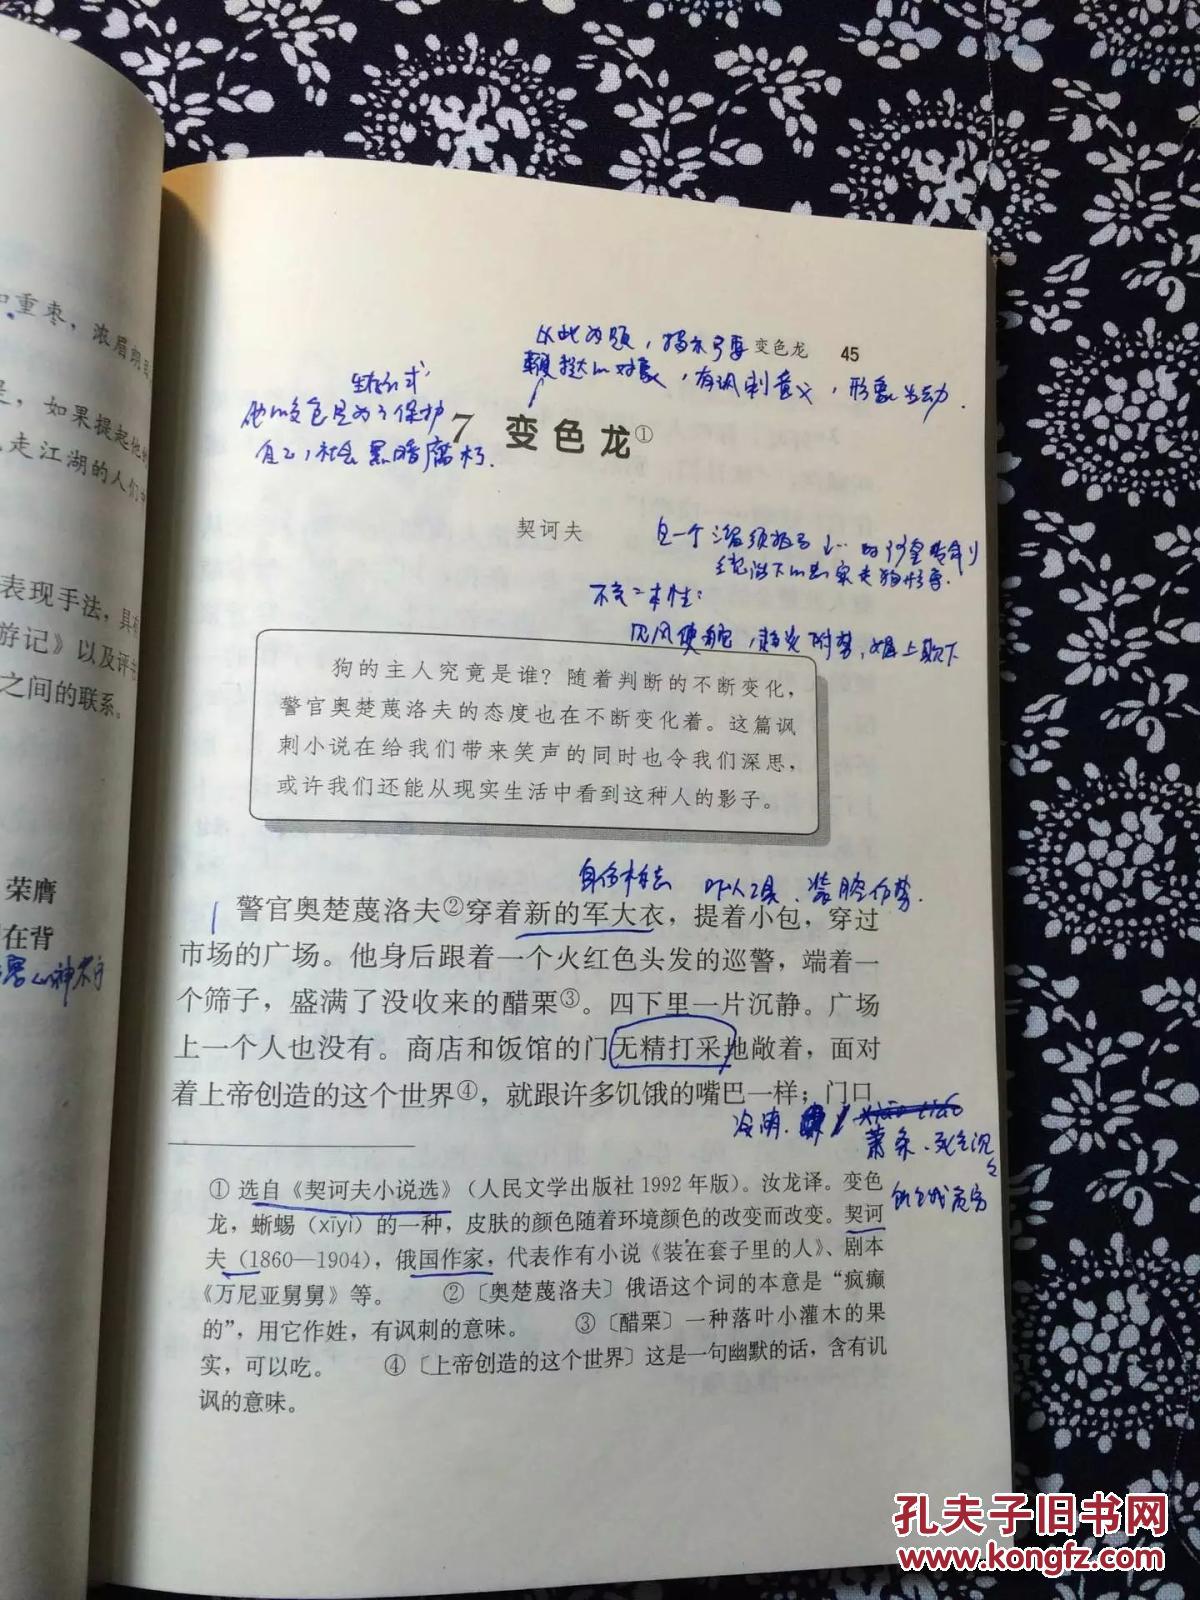 重枣，浓眉
是，如果提起他的
走江湖的人们中
表现手法，具有
游记》以及评书
之间的联系。
荣膺
在背
变色龙 45
以此为题，
的对象，有讽刺意义，形象生动.
他的变色是为了保护
自己，社会黑暗腐朽.
7 变色龙①
契诃夫
本性：
见风使舵，趋炎附势，媚上欺下
狗的主人究竟是谁？随着判断的不断变化，
警官奥楚蔑洛夫的态度也在不断变化着。这篇讽
刺小说在给我们带来笑声的同时也令我们深思，
或许我们还能从现实生活中看到这种人的影子。
身份标志 吓人工具、装腔作势.
警官奥楚蔑洛夫②穿着新的军大衣，提着小包，穿过
市场的广场。他身后跟着一个火红色头发的巡警，端着一
个筛子，盛满了没收来的醋栗③。四下里一片沉静。广场
上一个人也没有。商店和饭馆的门无精打采地敞着，面对
着上帝创造的这个世界④，就跟许多饥饿的嘴巴一样；门口
萧条、死气沉
①选自《契诃夫小说选》（人民文学出版社1992年版）。汝龙译。变色
龙，蜥蜴（xīyì）的一种，皮肤的颜色随着环境颜色的改变而改变。契诃
夫（1860—1904），俄国作家，代表作有小说《装在套子里的人》、剧本
《万尼亚舅舅》等。 ②〔奥楚蔑洛夫〕俄语这个词的本意是“疯癫
的”，用它作姓，有讽刺的意味。 ③〔醋栗〕一种落叶小灌木的果
实，可以吃。 ④〔上帝创造的这个世界〕这是一句幽默的话，含有讥
讽的意味。
孔夫子旧书网
www.kongfz.com